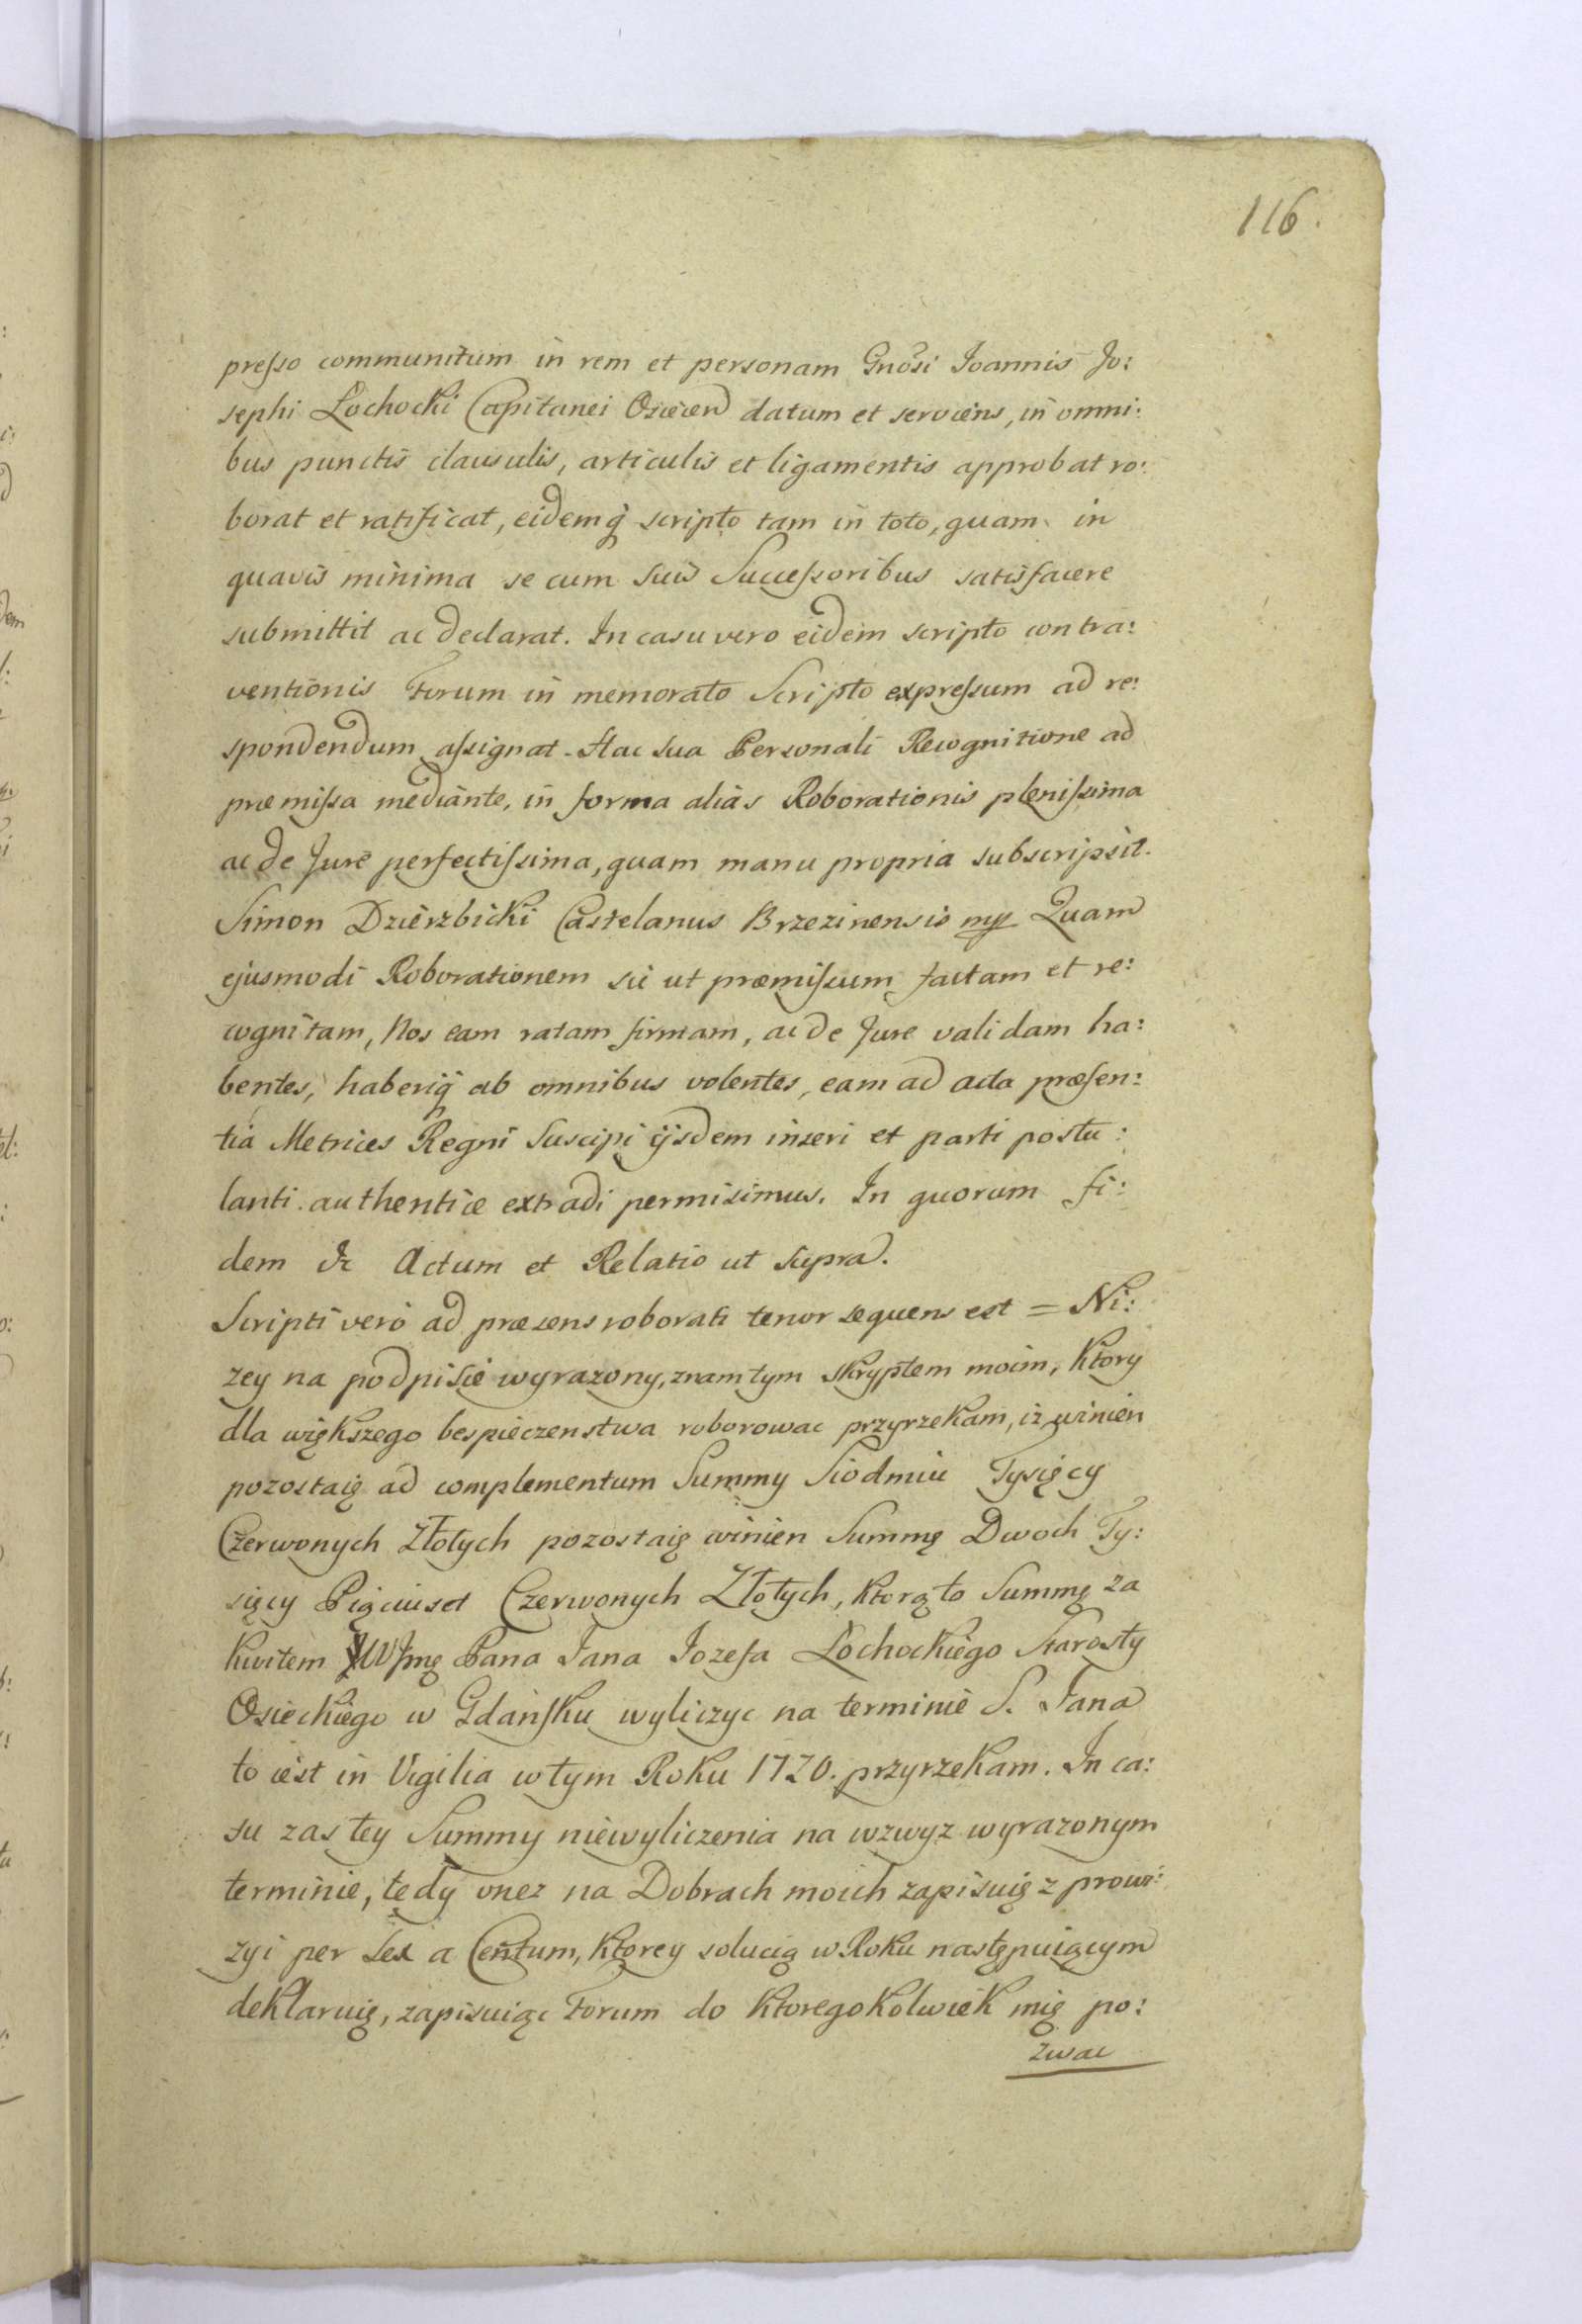 116.
presso communitum in rem et personam Gnosi Joannis Jo:
sephi Łochocki Capitanei Osiecen datum et serviens, in omni:
bus punctis clausulis, articulis et ligamentis approbat ro:
borat et ratificat, eidemq scripto tam in toto, quam in
quavis minima se cum suis Successoribus satisfacere
submittit ac declarat. In casu vero eidem scripto contra:
ventionis Forum in memorato Scripto expressum ad re:
spondendum assignat. Hac sua Personali Recognitione ad
præmissa mediante, in forma alias Roborationis plenissima
ac de Jure perfectissima, quam manu propria subscripsit.
Simon Dzierzbicki Castelanus Brzezinensis mp Quam
ejusmodi Roborationem sic ut præmissum factam et re:
cognitam, Nos eam ratam firmam, ac de Jure validam ha:
bentes, haberiq ab omnibus volentes, eam ad acta præsen:
tia Metrices Regni Suscipi ijsdem inseri et parti postu:
lanti authentice extradi permisimus. In quorum fi:
dem &c Actum et Relatio ut supra.
Scripti vero ad præsens roborati tenor sequens est = Ni:
zey na podpisie wyrazony, znam tym skryptem moim, ktory
dla większego bespieczenstwa roborowac przyrzekam, iz winien
pozostaię ad complementum Summy Siodmiu Tysięcy
Czerwonych Złotych pozostaię winien Summę Dwoch Ty:
sięcy Pięciuset Czerwonych Złotych, ktorą to Summę za
kwitem W Jmę Pana Jana Jozefa Łochockiego Starosty
Osieckiego w Gdańsku wyliczyc na terminie S. Jana
to iest in Vigilia w tym Roku 1720. przyrzekam. In ca:
su zas tey Summy niewyliczenia na wzwyz wyrazonym
terminie, tedy onez na Dobrach moich zapisuię z prowi:
zyi per sex a Centum, ktorey solucią w Roku następuiącym
deklaruię, zapisuiąc Forum do ktoregokolwiek mię po:
zwac